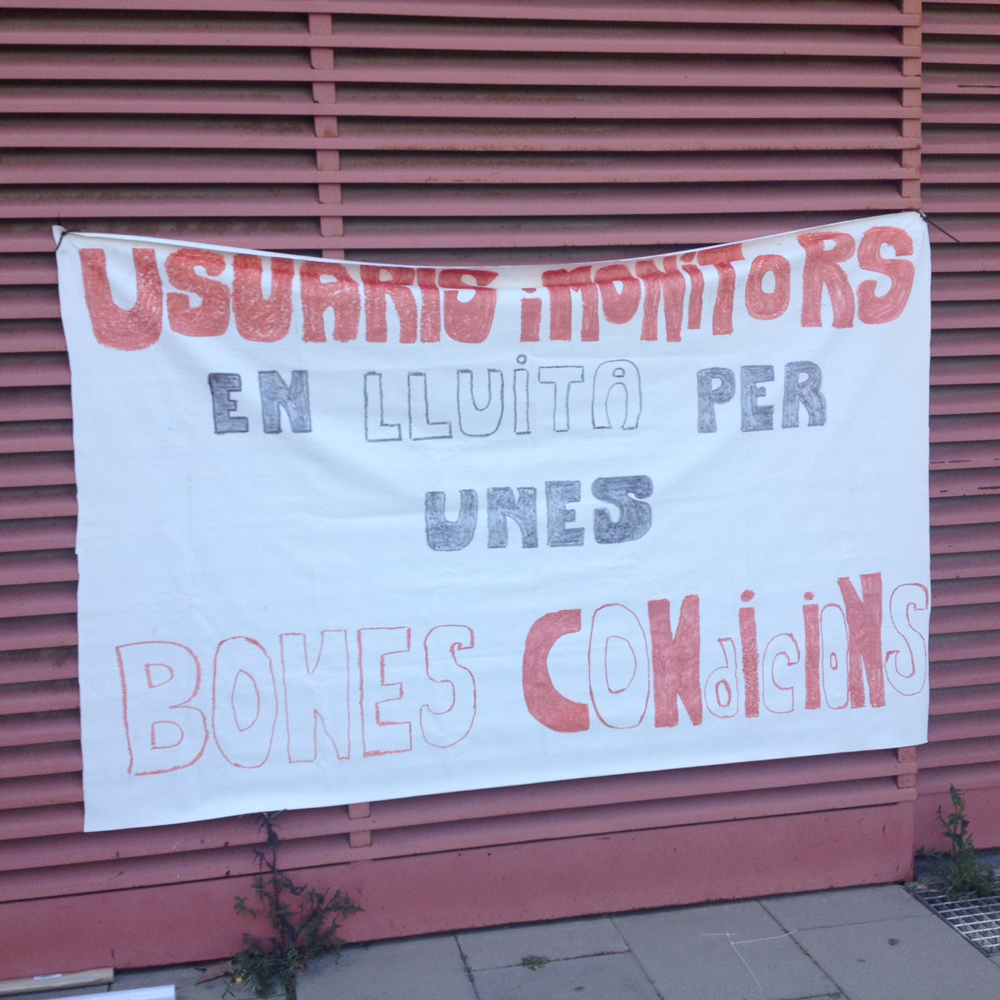 USUARIS i MONiTORS
EN LLUiTA PER
UNES
BONES CONdiCiONS